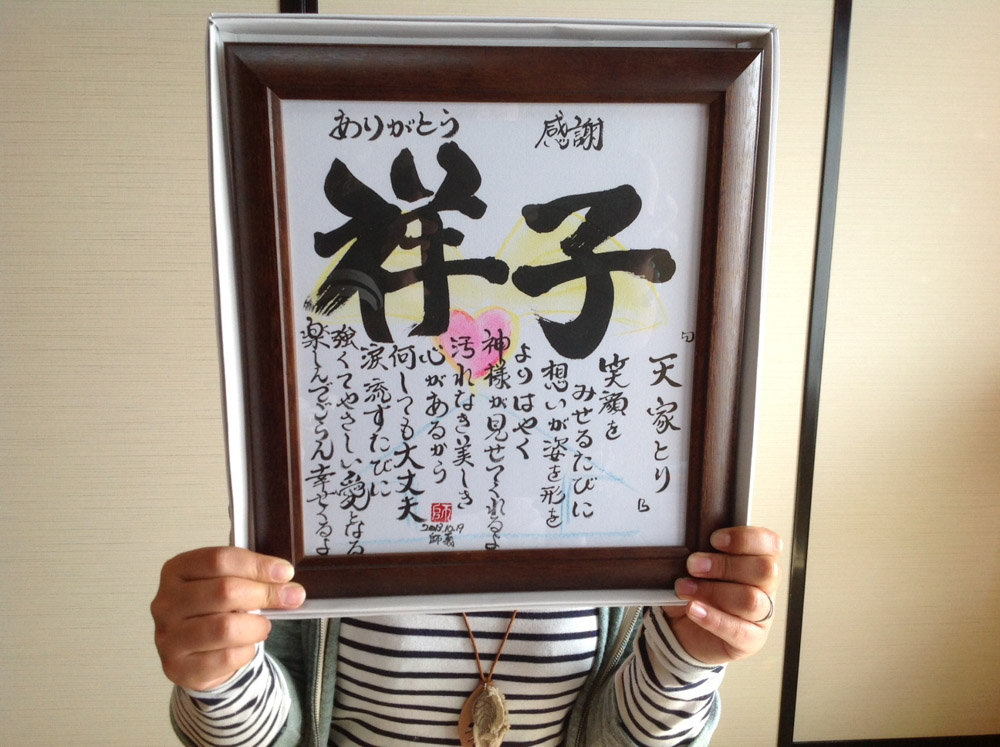 ありがとう
感謝
祥子
「天家とり」
笑顔を
みせるたびに
想いが姿を形を
よりはやく
神様が見せてくれるよ
汚れなき美しき
心があるから
何しても大丈夫
涙流すたびに
強くてやさしい愛となる
楽しんでごらん
師
2013.10.19